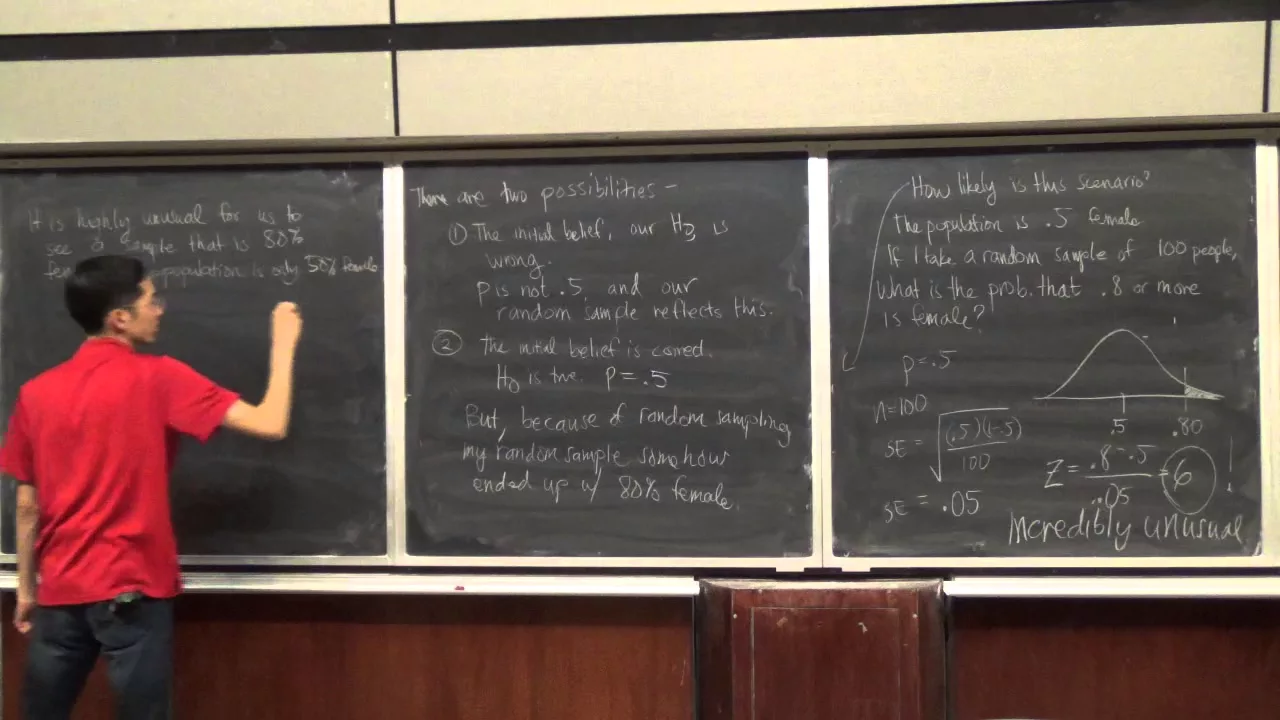 It is highly unusual for us to
see a sample that is 80%
population is only 50% female
There are two possibilities -
① The initial belief, our H is
wrong.
p is not .5, and our
random sample reflects this.
② The initial belief is correct.
H0 is true. p = .5
But, because of random sampling,
my random sample somehow
ended up w/ 80% female.
How likely is this scenario?
The population is .5 female
If I take a random sample of 100 people,
what is the prob. that .8 or more
is female?
p = .5
n=100
SE = √(.5)(1-.5)/100
SE = .05
.5 .80
Z = .8-.5/.05 = 6
Incredibly unusual